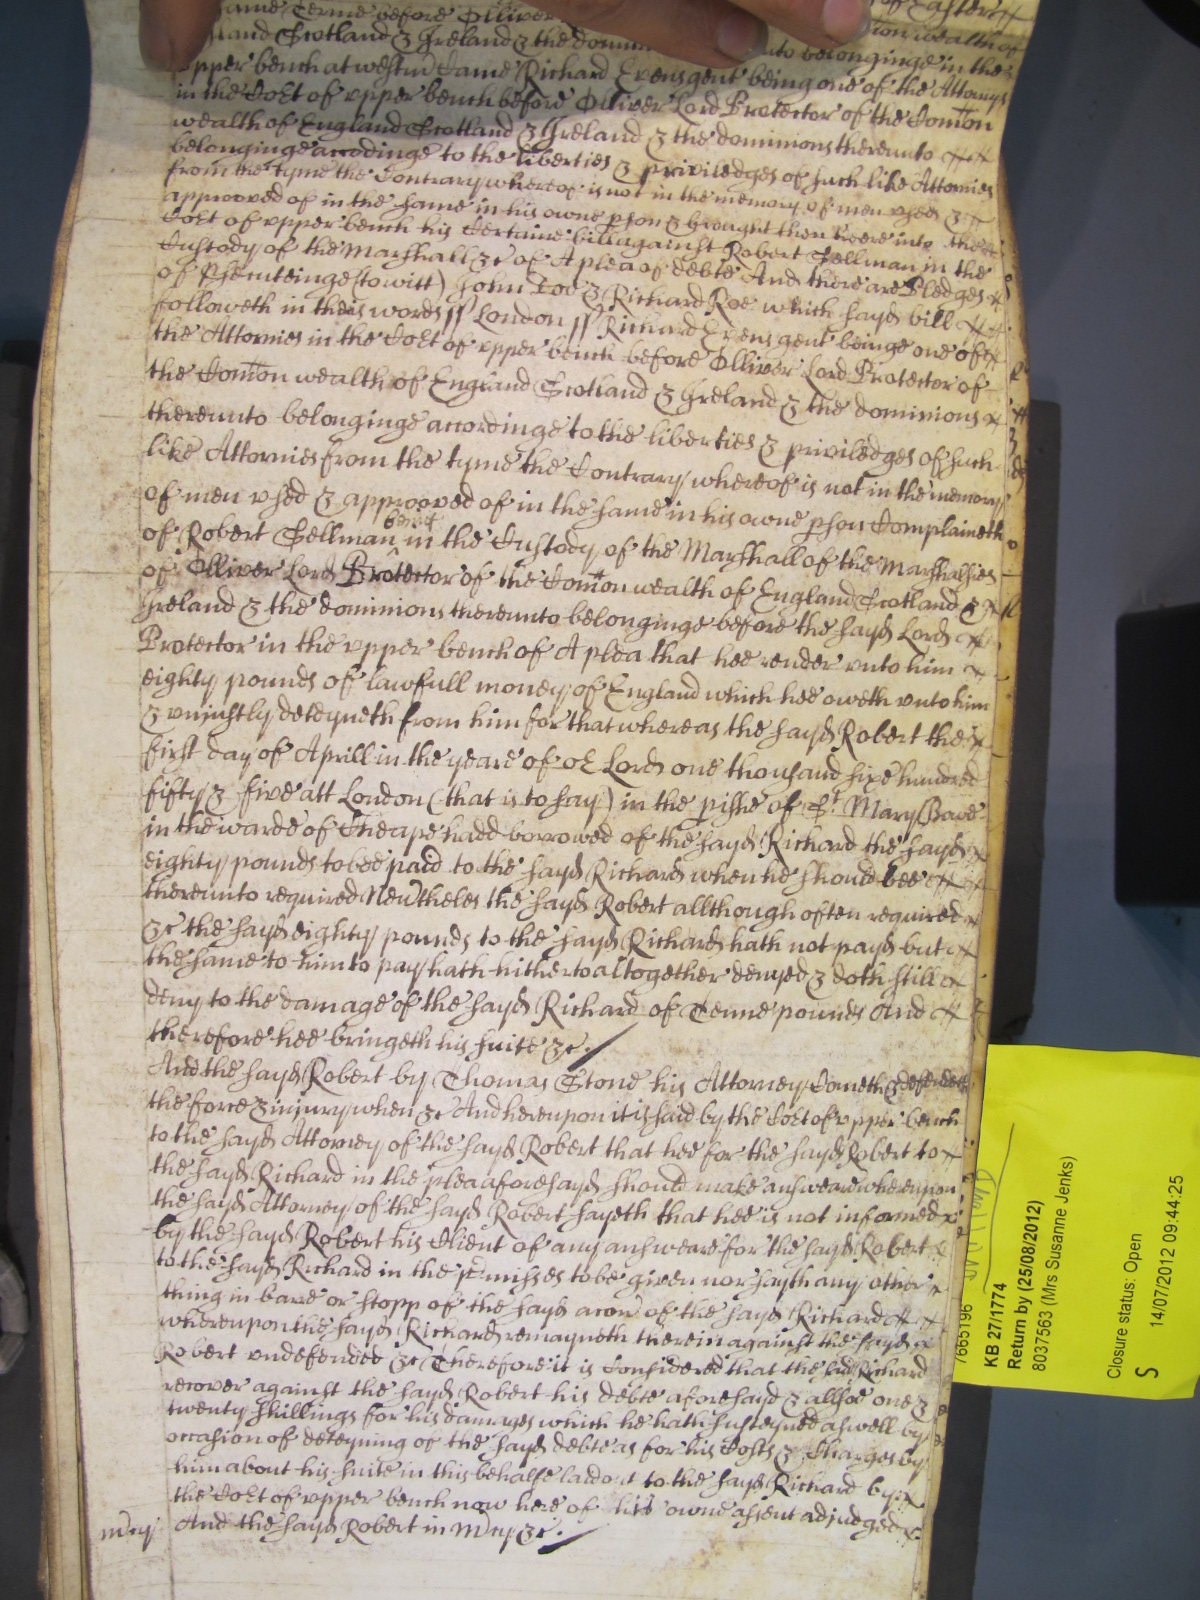 same Terme before Olliver of Easter
land Scotland & Ireland & the domin unto belonginge in the
upper bench at westm Came Richard Evens gent being one of the Attornys
in the Cort of upper bench before Olliver Lord Protector of the Comon
wealth of England Scotland & Ireland & the dominions thereunto
belonginge accordinge to the liberties & priviledges of such like Attornies
from the tyme the Contrary whereof is not in the memory of men used &
approoved of in the same in his owne pson & brought then heere into the
Cort of upper bench his Certaine bill against Robert Sellman in the
Custody of the Marshall &c of A plea of debte And there are Pledges
of psecuteinge (to witt) John Doe & Richard Roe which sayd bill
followeth in theis words // London // Richard Evens gent beinge one of
the Attornies in the Cort of upper bench before Olliver Lord Protector of
the Comon wealth of England Scotland & Ireland & the dominions
thereunto belonginge accordinge to the liberties & priviledges of such
like Attornies from the tyme the Contrary whereof is not in the memory
of men used & approoved of in the same in his owne pson Complaineth
of Robert Sellman beinge in the Custody of the Marshall of the Marshalsies
of Olliver Lord Protector of the Comon wealth of England Scotland &
Ireland & the dominions thereunto belonginge before the sayd Lord
Protector in the upper bench of A plea that hee render unto him
eighty pounds of lawfull money of England which hee oweth unto him
& unjustly deteyneth from him for that whereas the sayd Robert the
first day of Aprill in the yeare of or Lord one thousand sixe hundred
fifty & five att London (that is to say) in the pishe of St. Mary Bowe
in the warde of Cheape hadd borrowed of the sayd Richard the sayd
eighty pounds to bee paid to the sayd Richard when he should bee
thereunto required Nevtheles the sayd Robert allthough often required
&c the sayd eighty pounds to the sayd Richard hath not payd but
the same to him to pay hath hitherto altogether denyed & doth still
deny to the damage of the sayd Richard of Tenne pounds And
therefore hee bringeth his suite &c.
And the sayd Robert by Thomas Stone his Attorney Cometh & defendeth
the force & injury when &c And hereupon it is said by the Cort of upper bench
to the sayd Attorney of the sayd Robert that hee for the sayd Robert to
the sayd Richard in the plea aforesayd should make answeare whereupon
the sayd Attorney of the sayd Robert sayeth that hee is not informed
by the sayd Robert his Client of any answeare for the sayd Robert
to the sayd Richard in the pmisses to be given nor sayth any other
thing in barre or stopp of the sayd accon of the sayd Richard
whereupon the sayd Richard remayneth therein against the sayd
Robert undefended &c Therefore it is Considered that the sayd Richard
recover against the sayd Robert his debte aforesayd & allsoe one &
twenty shillings for his damages which he hath susteyned aswell by
occasion of deteyning of the sayd debte as for his Costs & Charges by
him about his suite in this behalfe laid out to the sayd Richard by
the Cort of upper bench now here of his owne assent adjudged
And the sayd Robert in mcy &c.
mcy
7665196
KB 27/1774
Return by (25/08/2012)
8037563 (Mrs Susanne Jenks)
Closure status: Open
S 14/07/2012 09:44:25